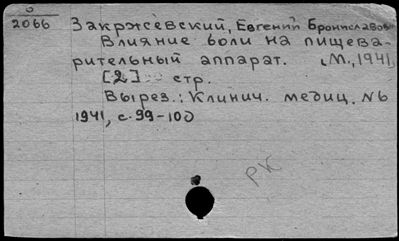 2066 Закржевский, Евгений Брониславович
Влияние боли на пищева-
рительный аппарат. [М., 1941]
[2] стр.
Вырез.: Клинич. медиц. №6
1941, с. 99-100
РК